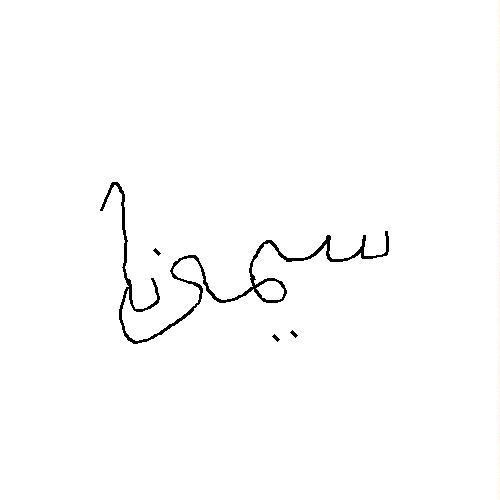 سيمونا